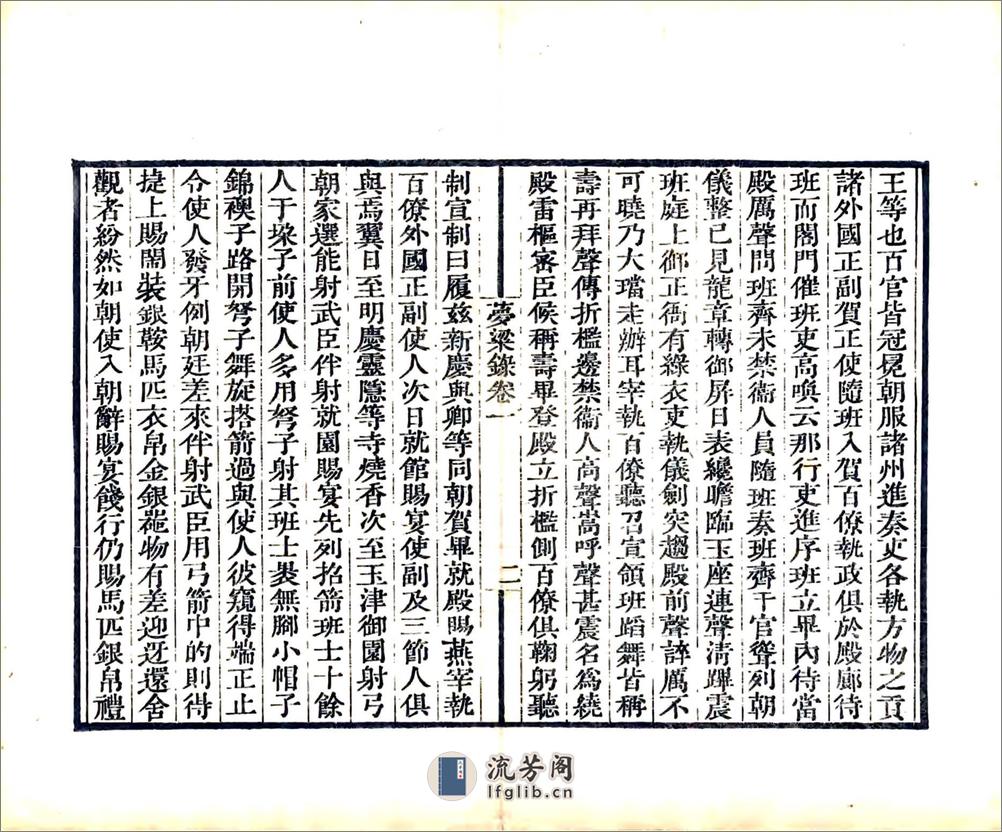 王等也百官皆冠冕朝服諸州進奏吏各執方物之貢
諸外國正副賀正使隨班入賀百僚執政俱於殿廊待
班而閤門催班吏高喚云那行吏進序班立畢內待當
殿厲聲問班齊未禁衞人員隨班奏班齊千官聳列朝
儀整已見龍章轉御屏日表纔瞻臨玉座連聲清蹕震
班庭上御正衙有綠衣吏執儀劍突趨殿前聲誶厲不
可曉乃大璫走辦耳宰執百僚聽召宣領班蹈舞皆稱
壽再拜聲傳折檻邊禁衞人高聲嵩呼聲甚震名爲繞
殿雷樞審臣候稱壽畢登殿立折檻側百僚俱鞠躬聽
夢粱錄卷一
二
制宣制曰履茲新慶與卿等同朝賀畢就殿賜燕宰執
百僚外國正副使人次日就館賜宴使副及三節人俱
與焉翼日至明慶靈隱等寺燒香次至玉津御園射弓
朝家選能射武臣伴射就園賜宴先列招箭班士十餘
人于垜子前使人多用弩子射其班士裝無腳小帽子
錦襖子路開弩子舞旋搭箭過與使人彼窺得端正止
令使人發牙例朝廷差來伴射武臣用弓箭中的則得
捷上賜鬧裝銀鞍馬匹衣帛金銀噐物有差迎迓還舍
觀者紛然如朝使入朝辭賜宴餞行仍賜馬匹銀帛禮
流芳阁
lfglib.cn